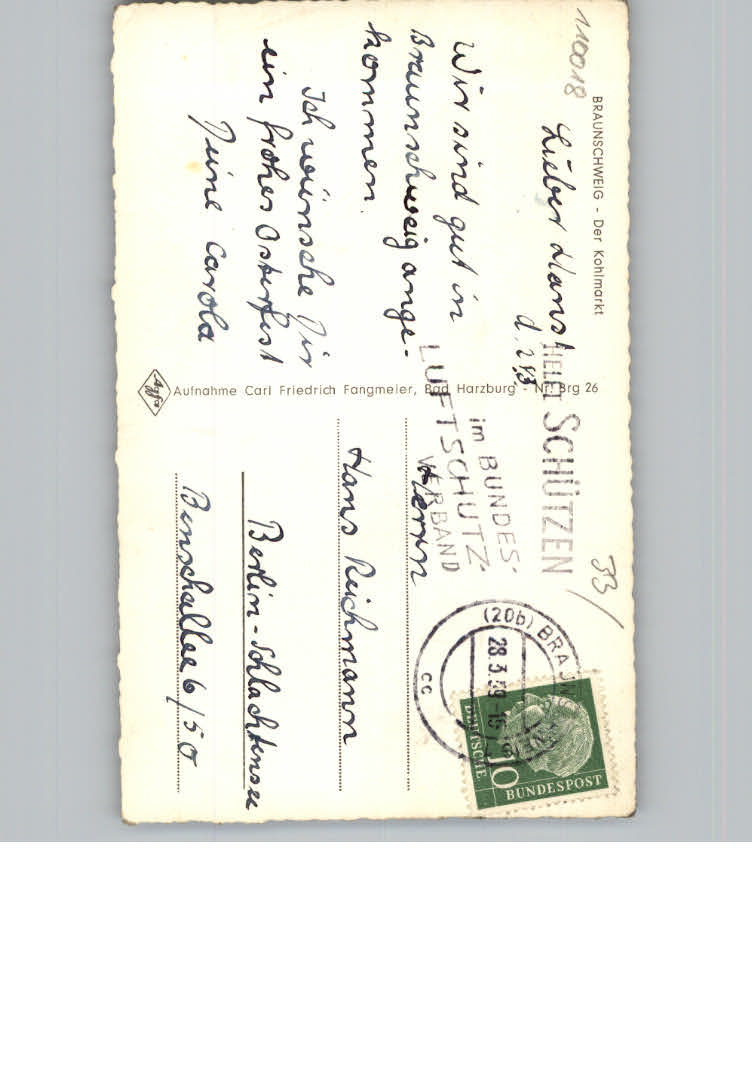 110018
BRAUNSCHWEIG - Der Kohlmarkt
Lieber Hans!
Wir sind gut in
Braunschweig ange-
kommen.
Ich wünsche Dir
ein frohes Osterfest
Deine Carola
Agfa
Aufnahme Carl Friedrich Fangmeier, Bad Harzburg - Nr. Brg 26
HELFT SCHÜTZEN
im BUNDES-
LUFTSCHUTZ-
VERBAND
33/
(20b) BRAUN
28.3.59-16
cc
DEUTSCHE
10
BUNDESPOST
Herrn
Hans Reichmann
Berlin-Schlachtensee